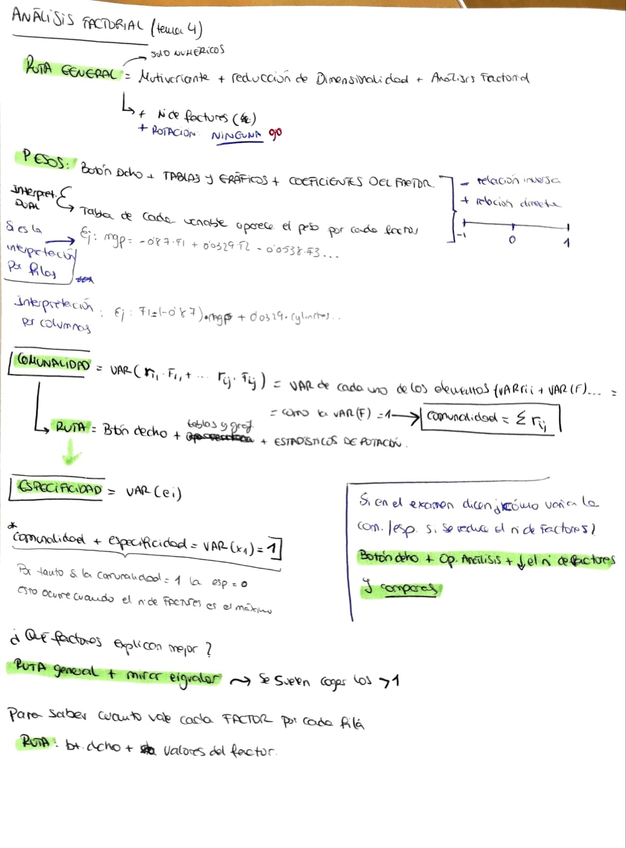 ANÁLISIS FACTORIAL (tema 4)
SOLO NUMERICOS
RUTA GENERAL = Mutivariante + reducción de Dimensionalidad + Análisis Factorial
+ Nº de factores
+ ROTACION: NINGUNA
PESOS: Botón Dcho + TABLAS Y GRÁFICOS + COEFICIENTES DEL FACTOR
- relación inversa
+ relación directa
-1 0 1
Interpret.
Tabla de cada variable aparece el peso por cada factor
Si es la interpretación por filas
Ej: mgp = -0'87·F1 + 0'0329·F2 - 0'0538·F3...
Interpretación por columnas
: Ej: F1=(-0'87)·mgp + 0'0329·cylindres..
COMUNALIDAD = VAR(ri1·Fi1 + ... rij·Fij) = VAR de cada uno de los elementos (VAR ri + VAR(F)... =
= como la VAR(F) = 1 → comunalidad = Σ rij
RUTA = Btón dcho + tablas y graf + ESTADISTICOS DE ROTACIÓN
ESPECIFICIDAD = VAR(ei)
* comunalidad + especificidad = VAR(x1) = 1
Por tanto si la comunalidad = 1 la esp = 0
esto ocurre cuando el nº de FACTORES es el máximo
Si en el examen dicen ¿cómo varía la
com./esp. si se reduce el nº de factores?
Botón dcho + Op. Análisis + ↓ el nº de factores
y comparas
¿Qué factores explican mejor?
RUTA general + mirar eigvalor → Se suelen coger los >1
Para saber cuanto vale cada FACTOR por cada fila
RUTA: bt. dcho + valores del factor.